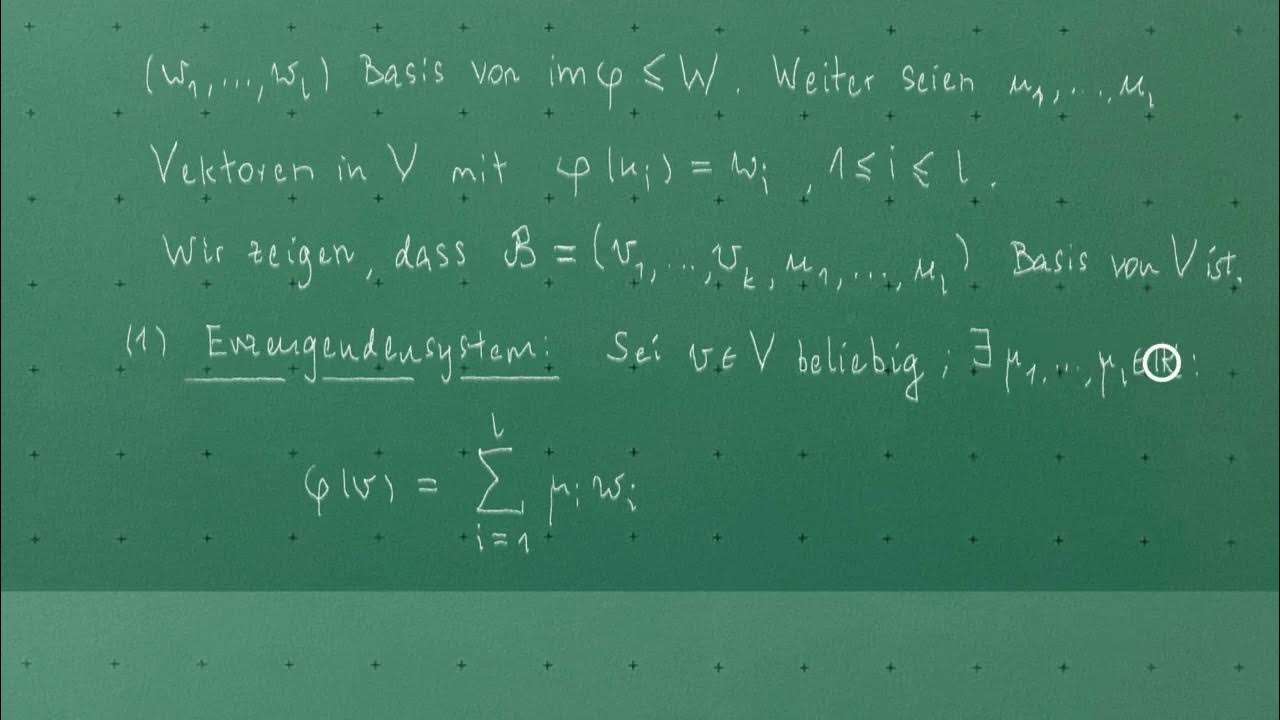 (w₁,...,w_l) Basis von im φ ≤ W. Weiter seien u₁,...,u_l
Vektoren in V mit φ(u_i) = w_i , 1 ≤ i ≤ l.
Wir zeigen, dass B = (v₁,...,v_k, u₁,...,u_l) Basis von V ist.
(1) Erzeugendensystem: Sei v ∈ V beliebig; ∃ μ₁,...,μ_l ∈ K :
φ(v) = ∑_{i=1}^{l} μ_i w_i